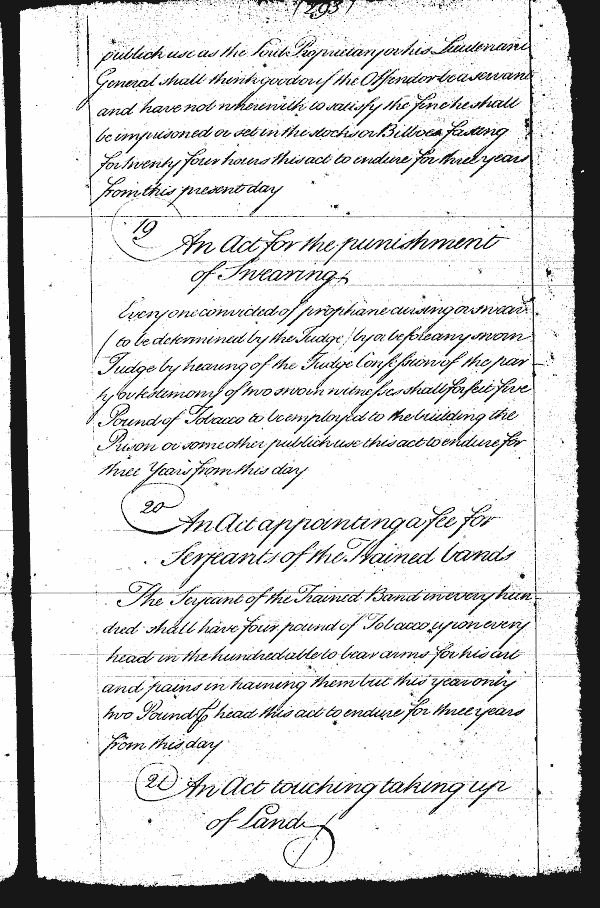 (293)
publick use as the Lord Proprietary or his Lieutenant
General shall think good or if the Offendor be a servant
and have not wherewith to satisfy the fine he shall
be imprisoned or set in the stocks or Bilboes fasting
for twenty four hours this act to endure for three years
from this present day
19
An Act for the punishment
of Swearing
Every one convicted of prophane cursing or swear
(to be determined by the Judge) by or before any sworn
Judge by hearing of the Judge Confession of the par-
ty or testimony of two sworn witnesses shall forfeit five
Pound of Tobacco to be employed to the building the
Prison or some other publick use this act to endure for
three Years from this day
20
An Act appointing a fee for
Serjeants of the Trained bands
The Serjeant of the Trained Band in every hun-
dred shall have four pound of Tobacco upon every
head in the hundred able to bear arms for his art
and pains in training them but this year only
two Pound head this act to endure for three years
from this day
21 An Act touching taking up
of Land